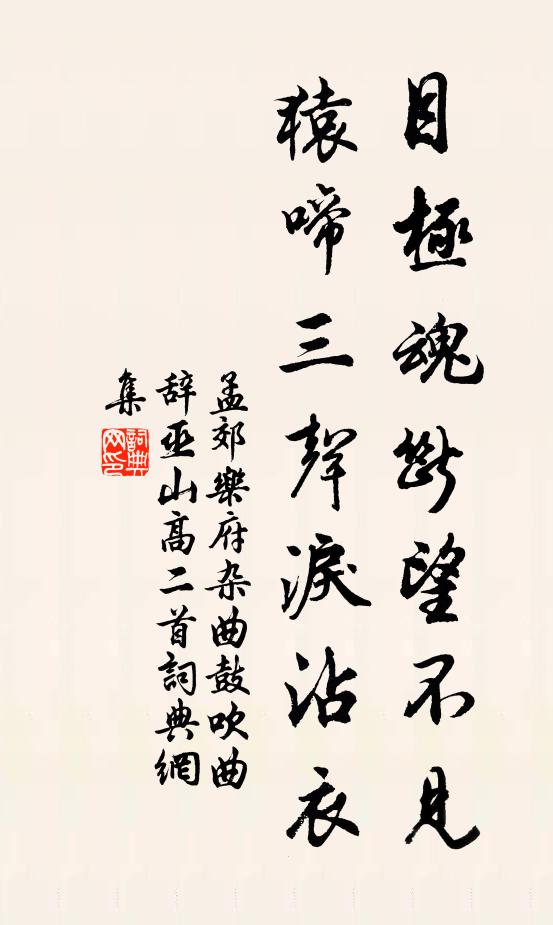 目極魂斷望不見
猿啼三聲淚沾衣
孟郊樂府杂曲鼓吹曲
辞巫山高二首詞典網
集
詞典
网印